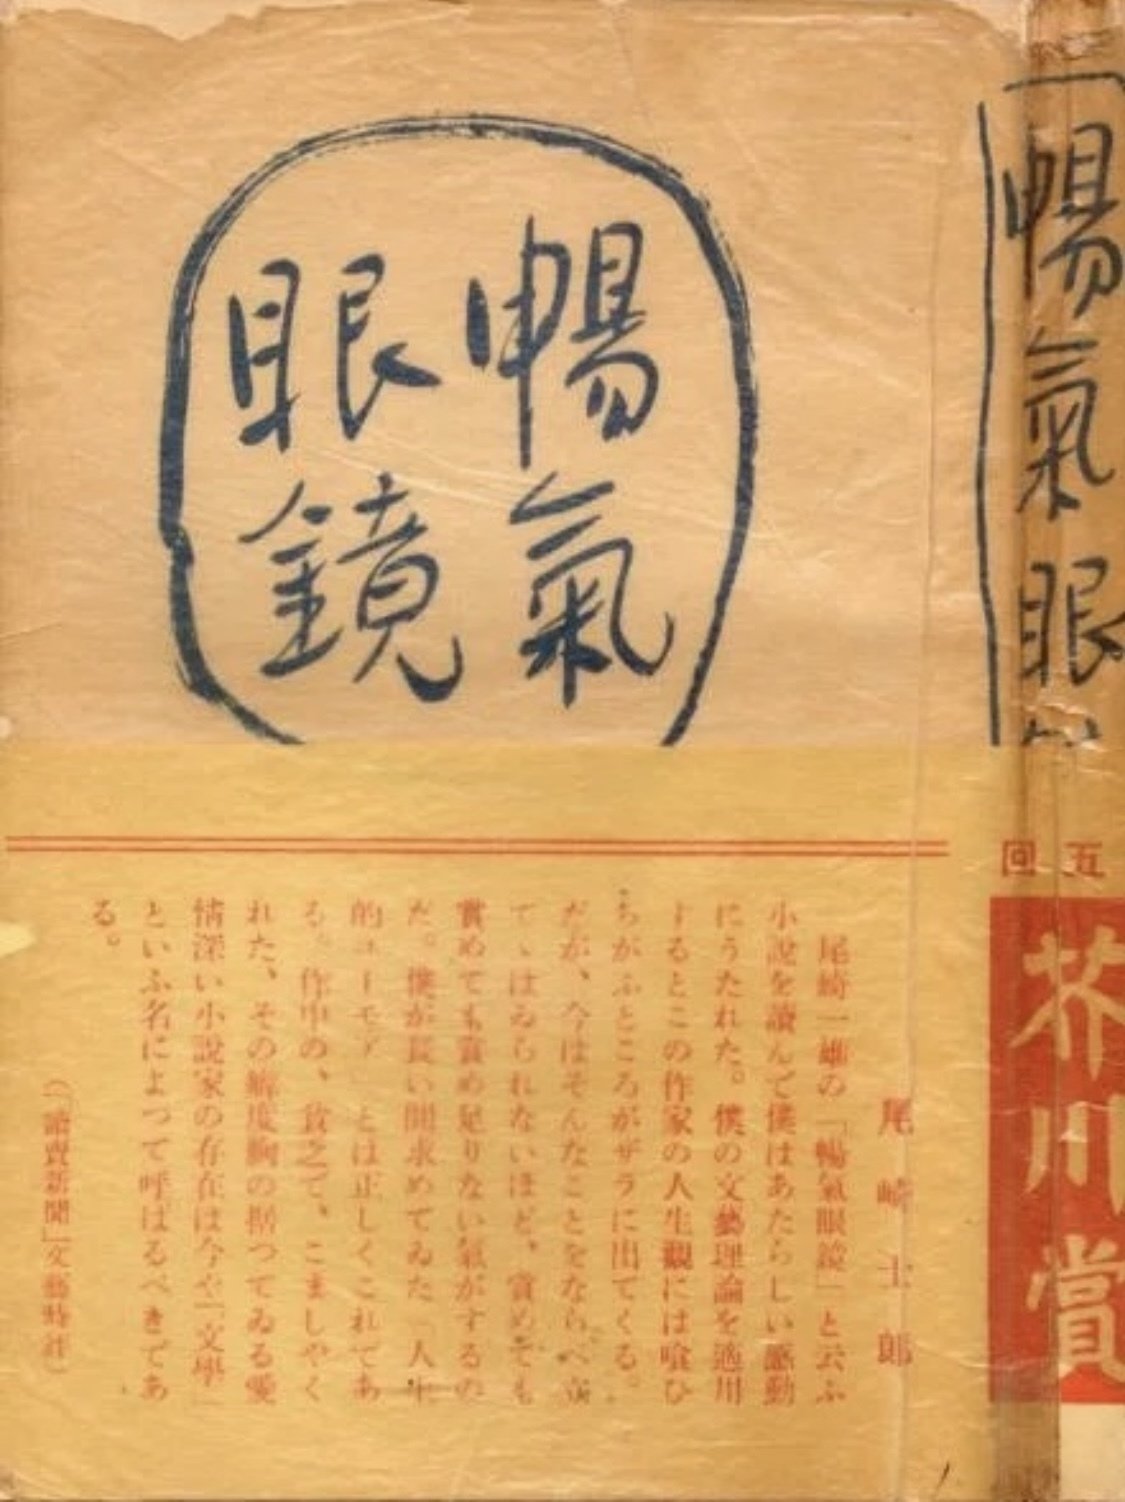 暢氣
眼鏡
暢氣眼
五回
芥川賞
尾崎士郎
尾崎一雄の「暢氣眼鏡」と云ふ
小説を讀んで僕はあたらしい感動
にうたれた。僕の文藝理論を適用
するとこの作家の人生觀には喰ひ
ちがふところがザラに出てくる。
だが、今はそんなことをならべ立
てゝはゐられないほど、賞めても
賞めても賞め足りない氣がするの
だ。僕が長い間求めてゐた「人生
的ユーモア」とは正しくこれであ
る。作中の、敢えて、こましやく
れた、その癖度胸の据つてゐる愛
情深い小説家の存在は今や「文學」
といふ名によつて呼ばるべきであ
る。
(「讀賣新聞」文藝時評)